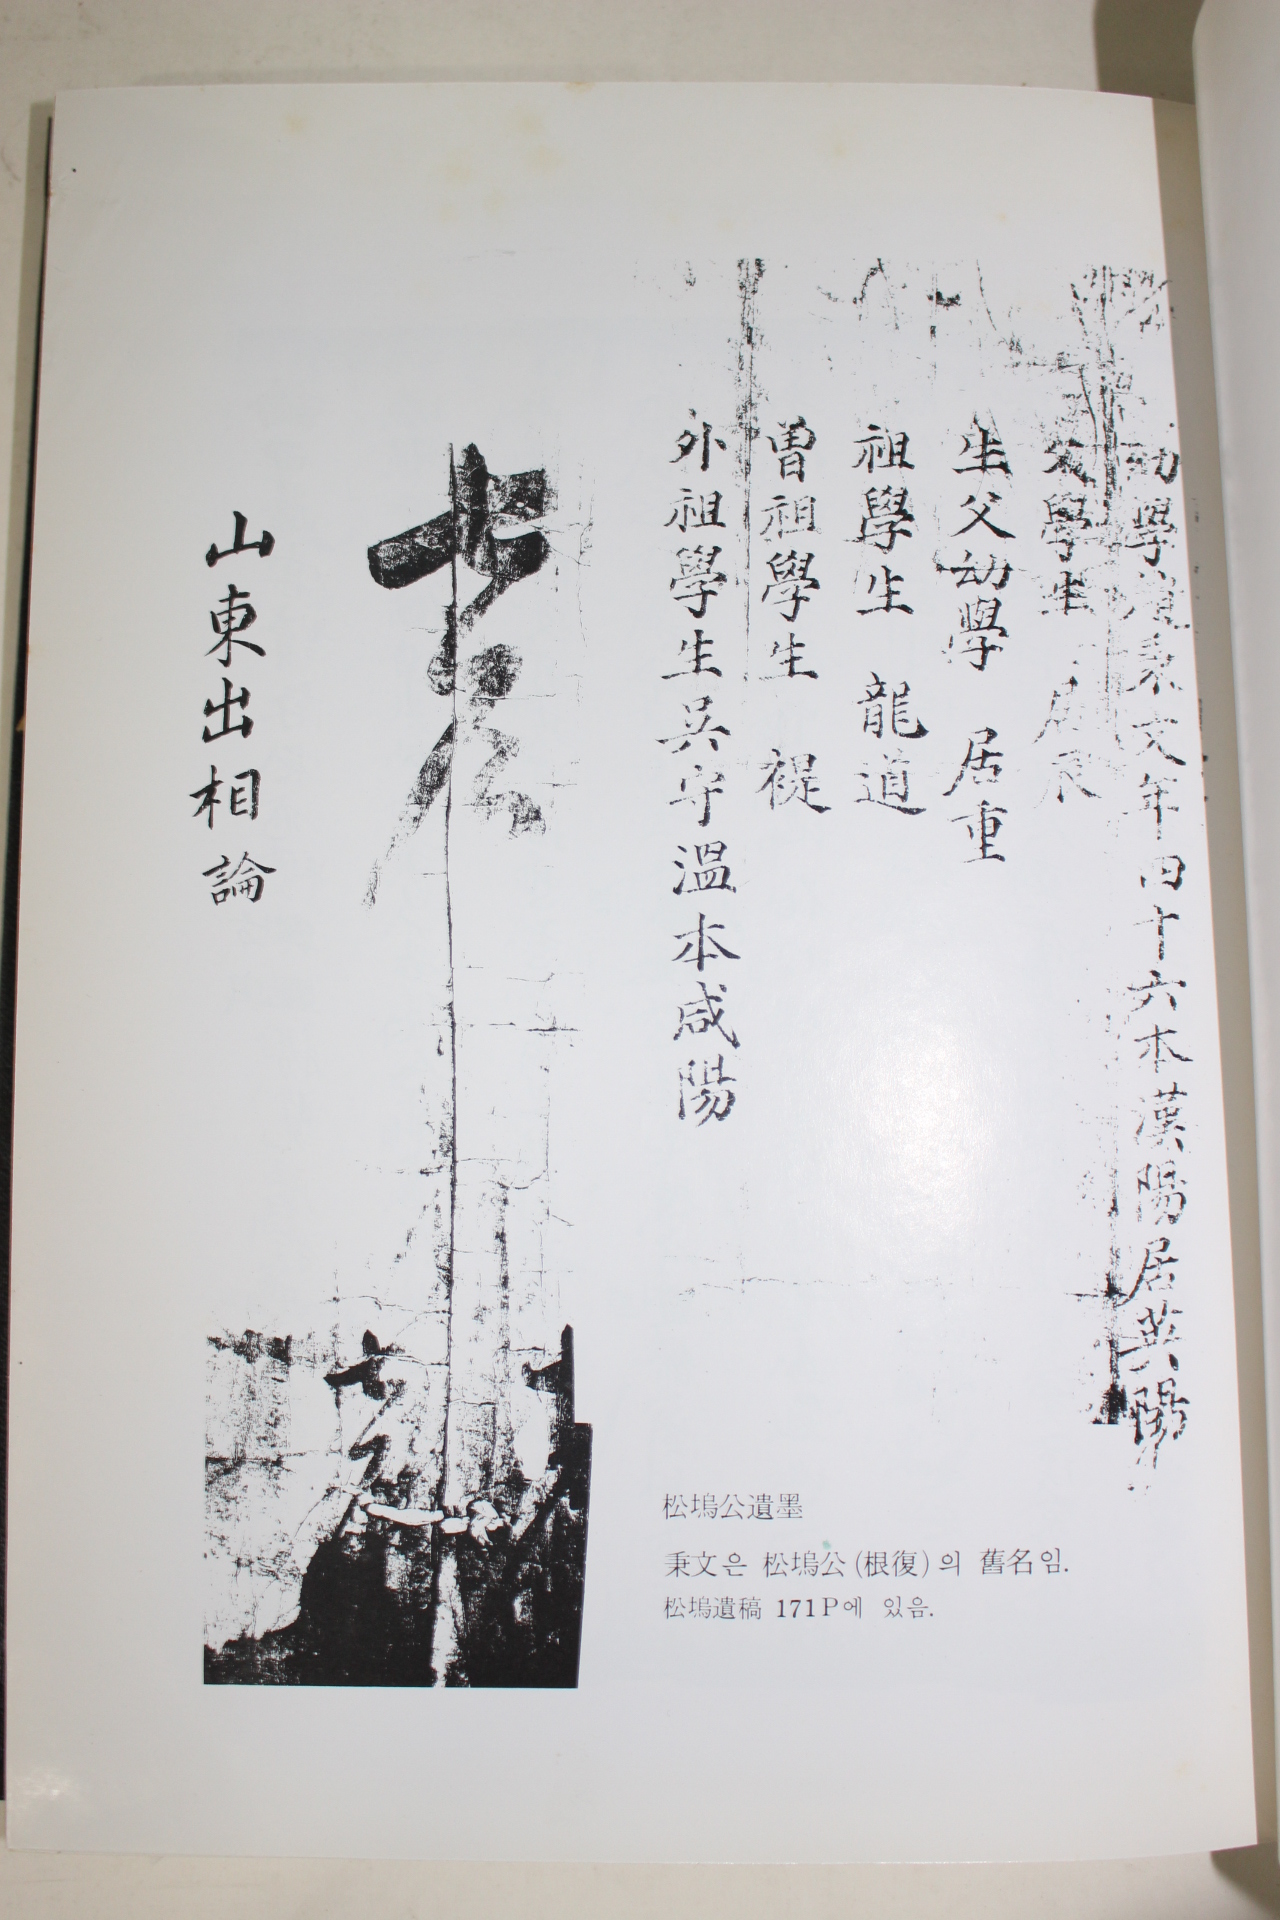 幼學趙秉文年四十六本漢陽居英陽
父學生 居
生父幼學 居重
祖學生 龍道
曾祖學生 禔
外祖學生吳守溫本咸陽
山東出相論
松塢公遺墨
秉文은 松塢公(根復)의 舊名임.
松塢遺稿 171P에 있음.